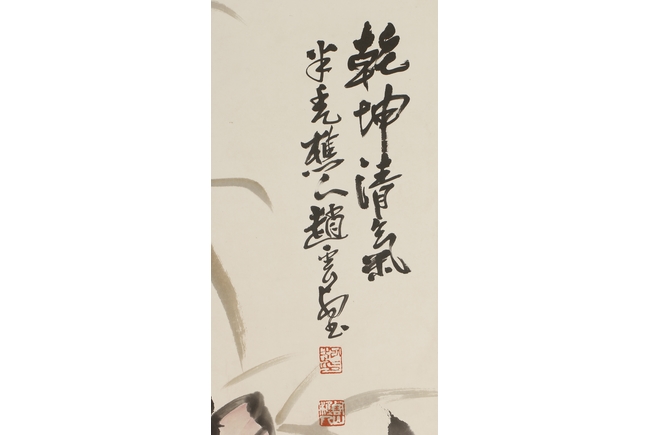 乾坤清氣
半禿樵人趙雲壑